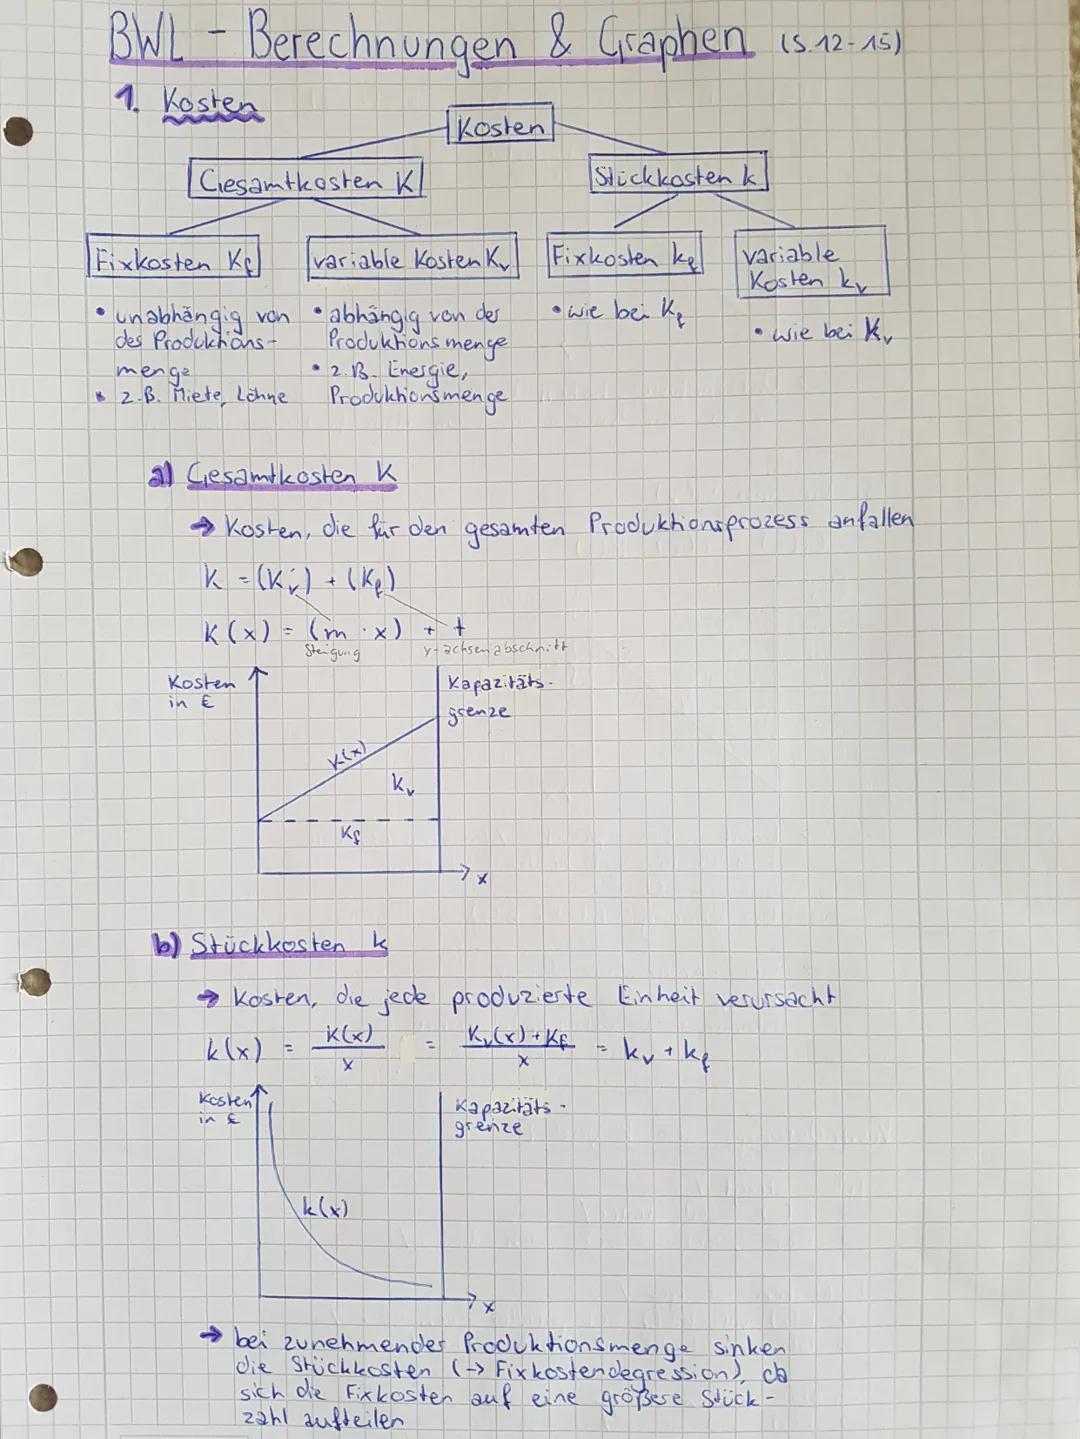 BWL - Berechnungen & Graphen (S. 12-15)
1. Kosten
Kosten
Gesamtkosten K
Stückkosten k
Fixkosten Kf
variable Kosten Kv
Fixkosten kf
variable
Kosten kv
• unabhängig von
der Produktions-
menge
• z.B. Miete, Löhne
• abhängig von der
Produktionsmenge
• z.B. Energie,
Produktionsmenge
• wie bei Kf
• wie bei Kv
a) Gesamtkosten K
→ Kosten, die für den gesamten Produktionsprozess anfallen
K = (Kv) + (Kf)
K(x) = (m · x) + t
Steigung
y-achsenabschnitt
Kosten
in €
Kapazitäts-
grenze
K(x)
kv
Kf
x
b) Stückkosten k
→ Kosten, die jede produzierte Einheit verursacht
k(x) = K(x)/x = Kv(x)+Kf/x = kv + kf
Kosten
in €
Kapazitäts-
grenze
k(x)
x
→ bei zunehmender Produktionsmenge sinken
die Stückkosten (→ Fixkostendegression), da
sich die Fixkosten auf eine größere Stück-
zahl aufteilen